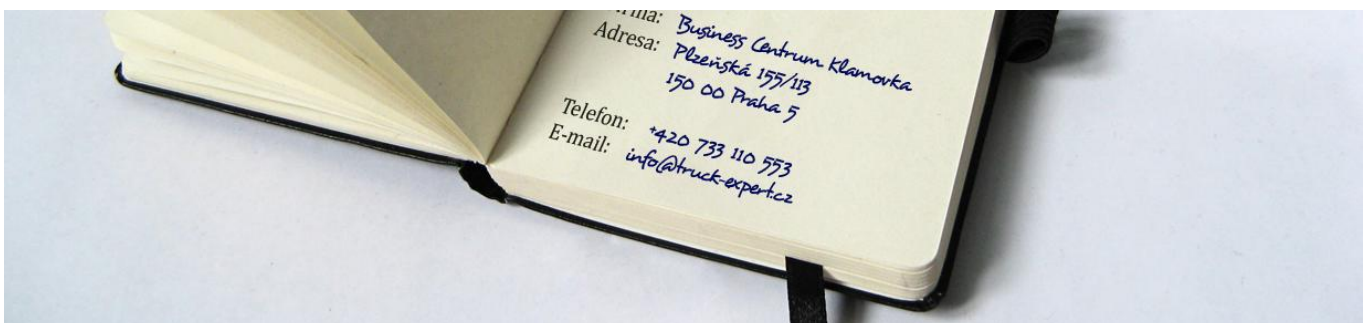 Business Centrum Klamovka
Adresa: Plzeňská 155/113
150 00 Praha 5
Telefon: +420 733 110 553
E-mail: info@truck-expert.cz